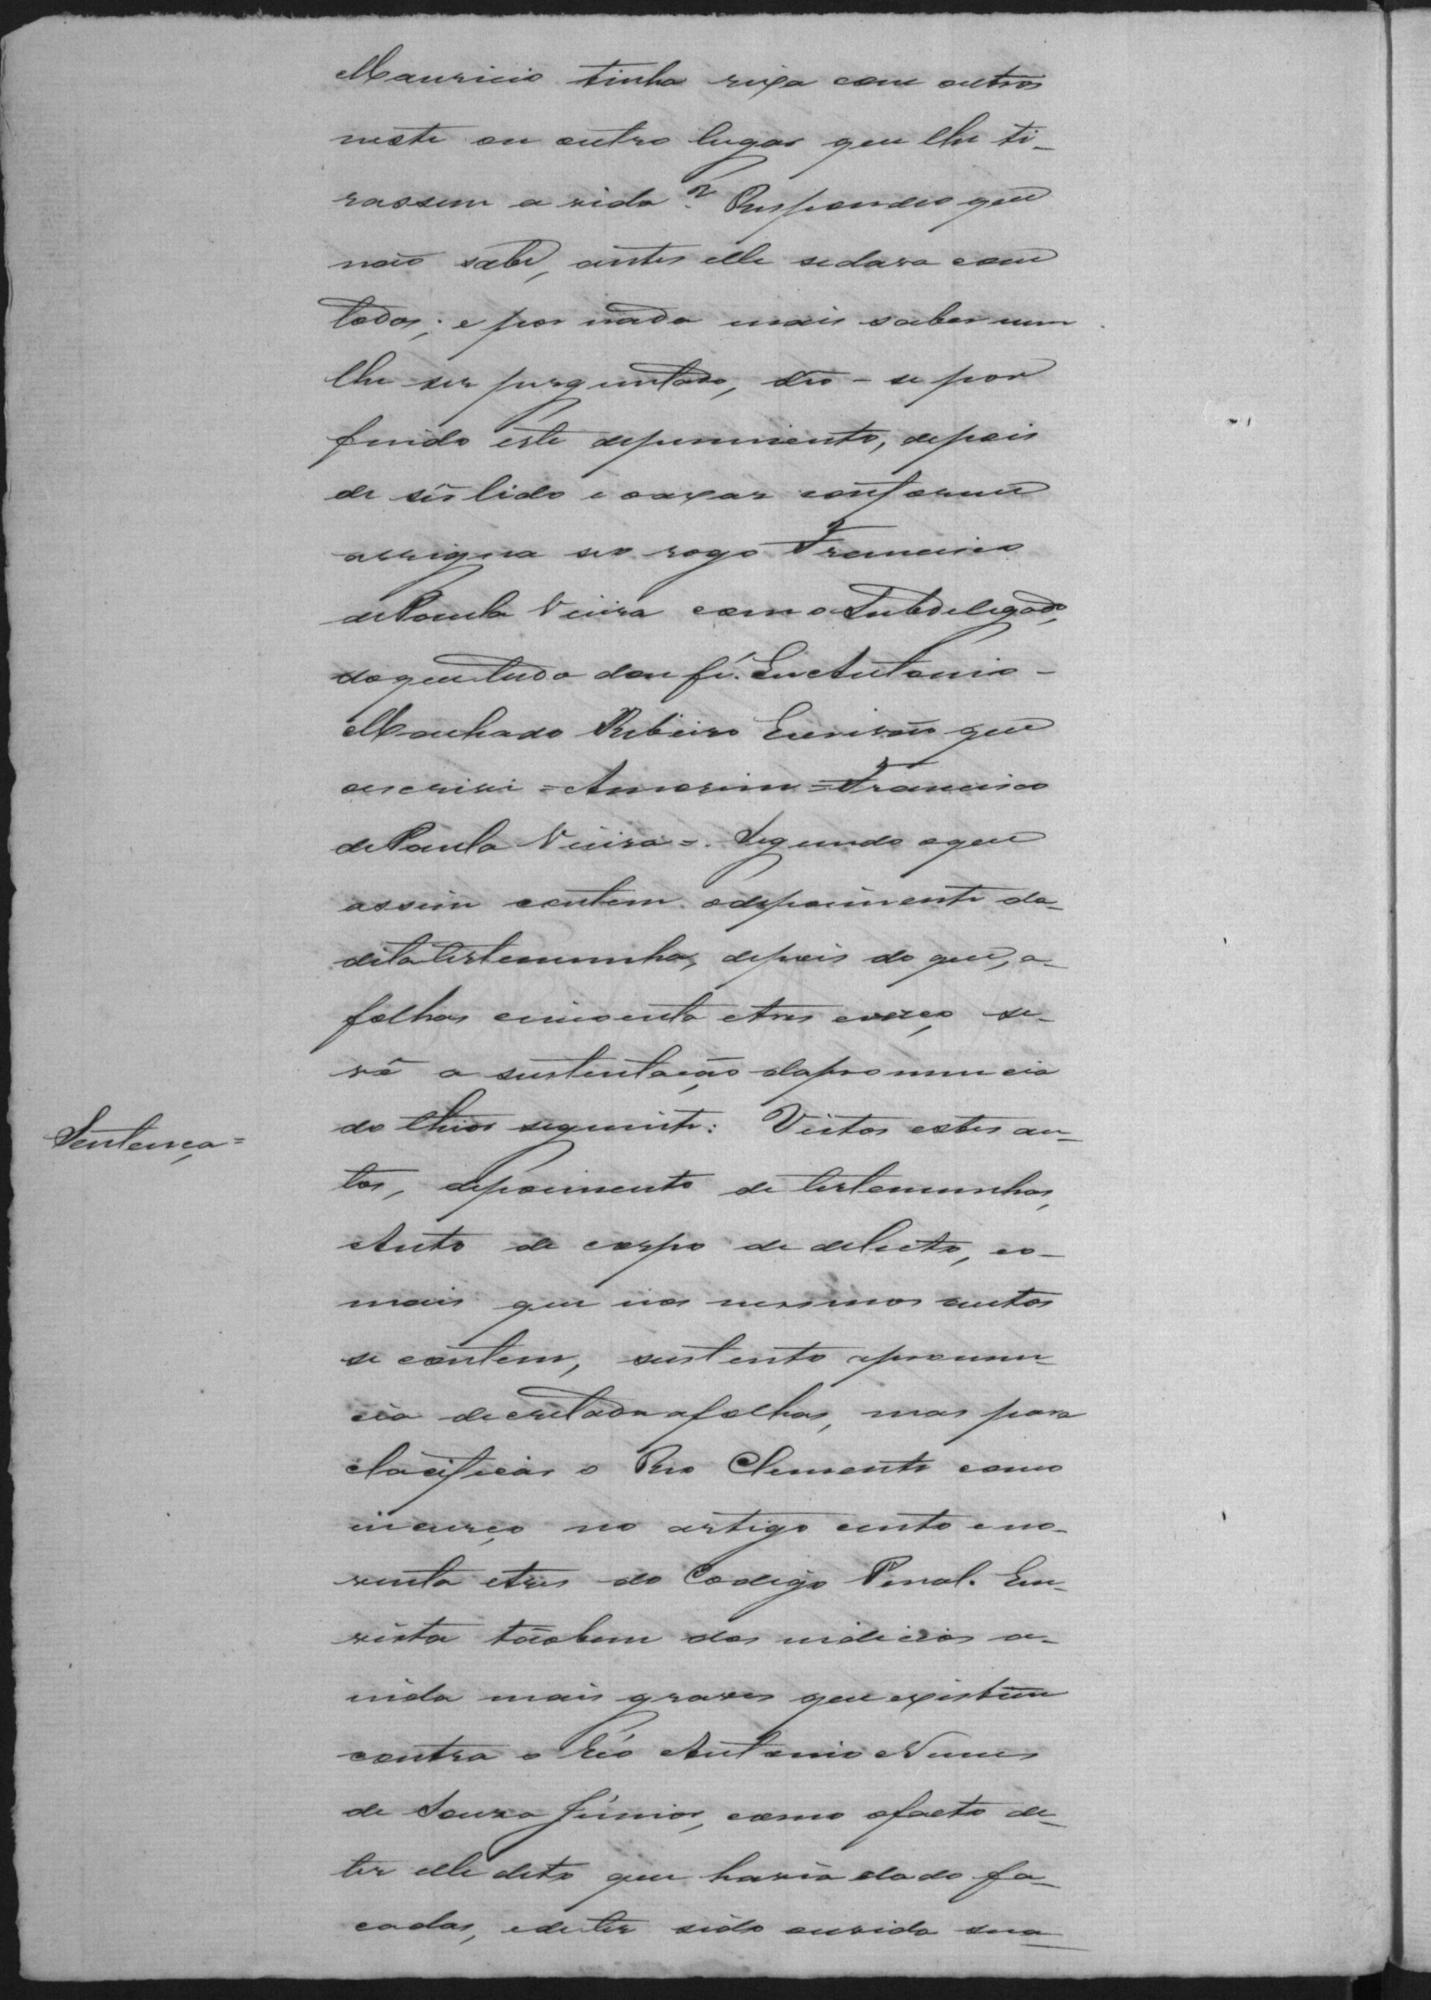 Mauricio tinha rixa com outros
neste ou outro lugar que lhe ti-
rassem a vida? Respondeo que
não sabe, antes elle se dava com
todos; e por nada mais saber nem
lhe ser perguntado, deo-se por
findo este depuimento, depois
de ser lido e axar conforme
assigna seo rogo Francisco
de Paula Vieira com o Subdelegado,
do que tudo dou fé. Eu Antonio-
Machado Ribeiro Escrivão que
escrivi = Amorim = Francisco
de Paula Vieira =. Segundo o que
assim contem o depoimento da
dita testemunha, depois do que, a-
folhas cincoenta e tres verço se-
vê a sustentação da pronuncia
do theor seguinte: Vistos estes au-
Sentença=
tos, depoimento de testemunhas,
Auto de corpo de delicto, eo-
mais que nos mesmos autos
se contem, sustento a pronun-
cia decretada a folhas, mas para
clacificar o Reo Clemente como
incurço no artigo cento e no-
venta e tres do Codigo Penal. Em
vista tãobem dos indicios a-
inda mais graves que existem
contra o Réo Antonio Nunes
de Souza Júnior, como o facto de-
ter elle dito que havia dado fa-
cadas, e de ter sido ouvida sua